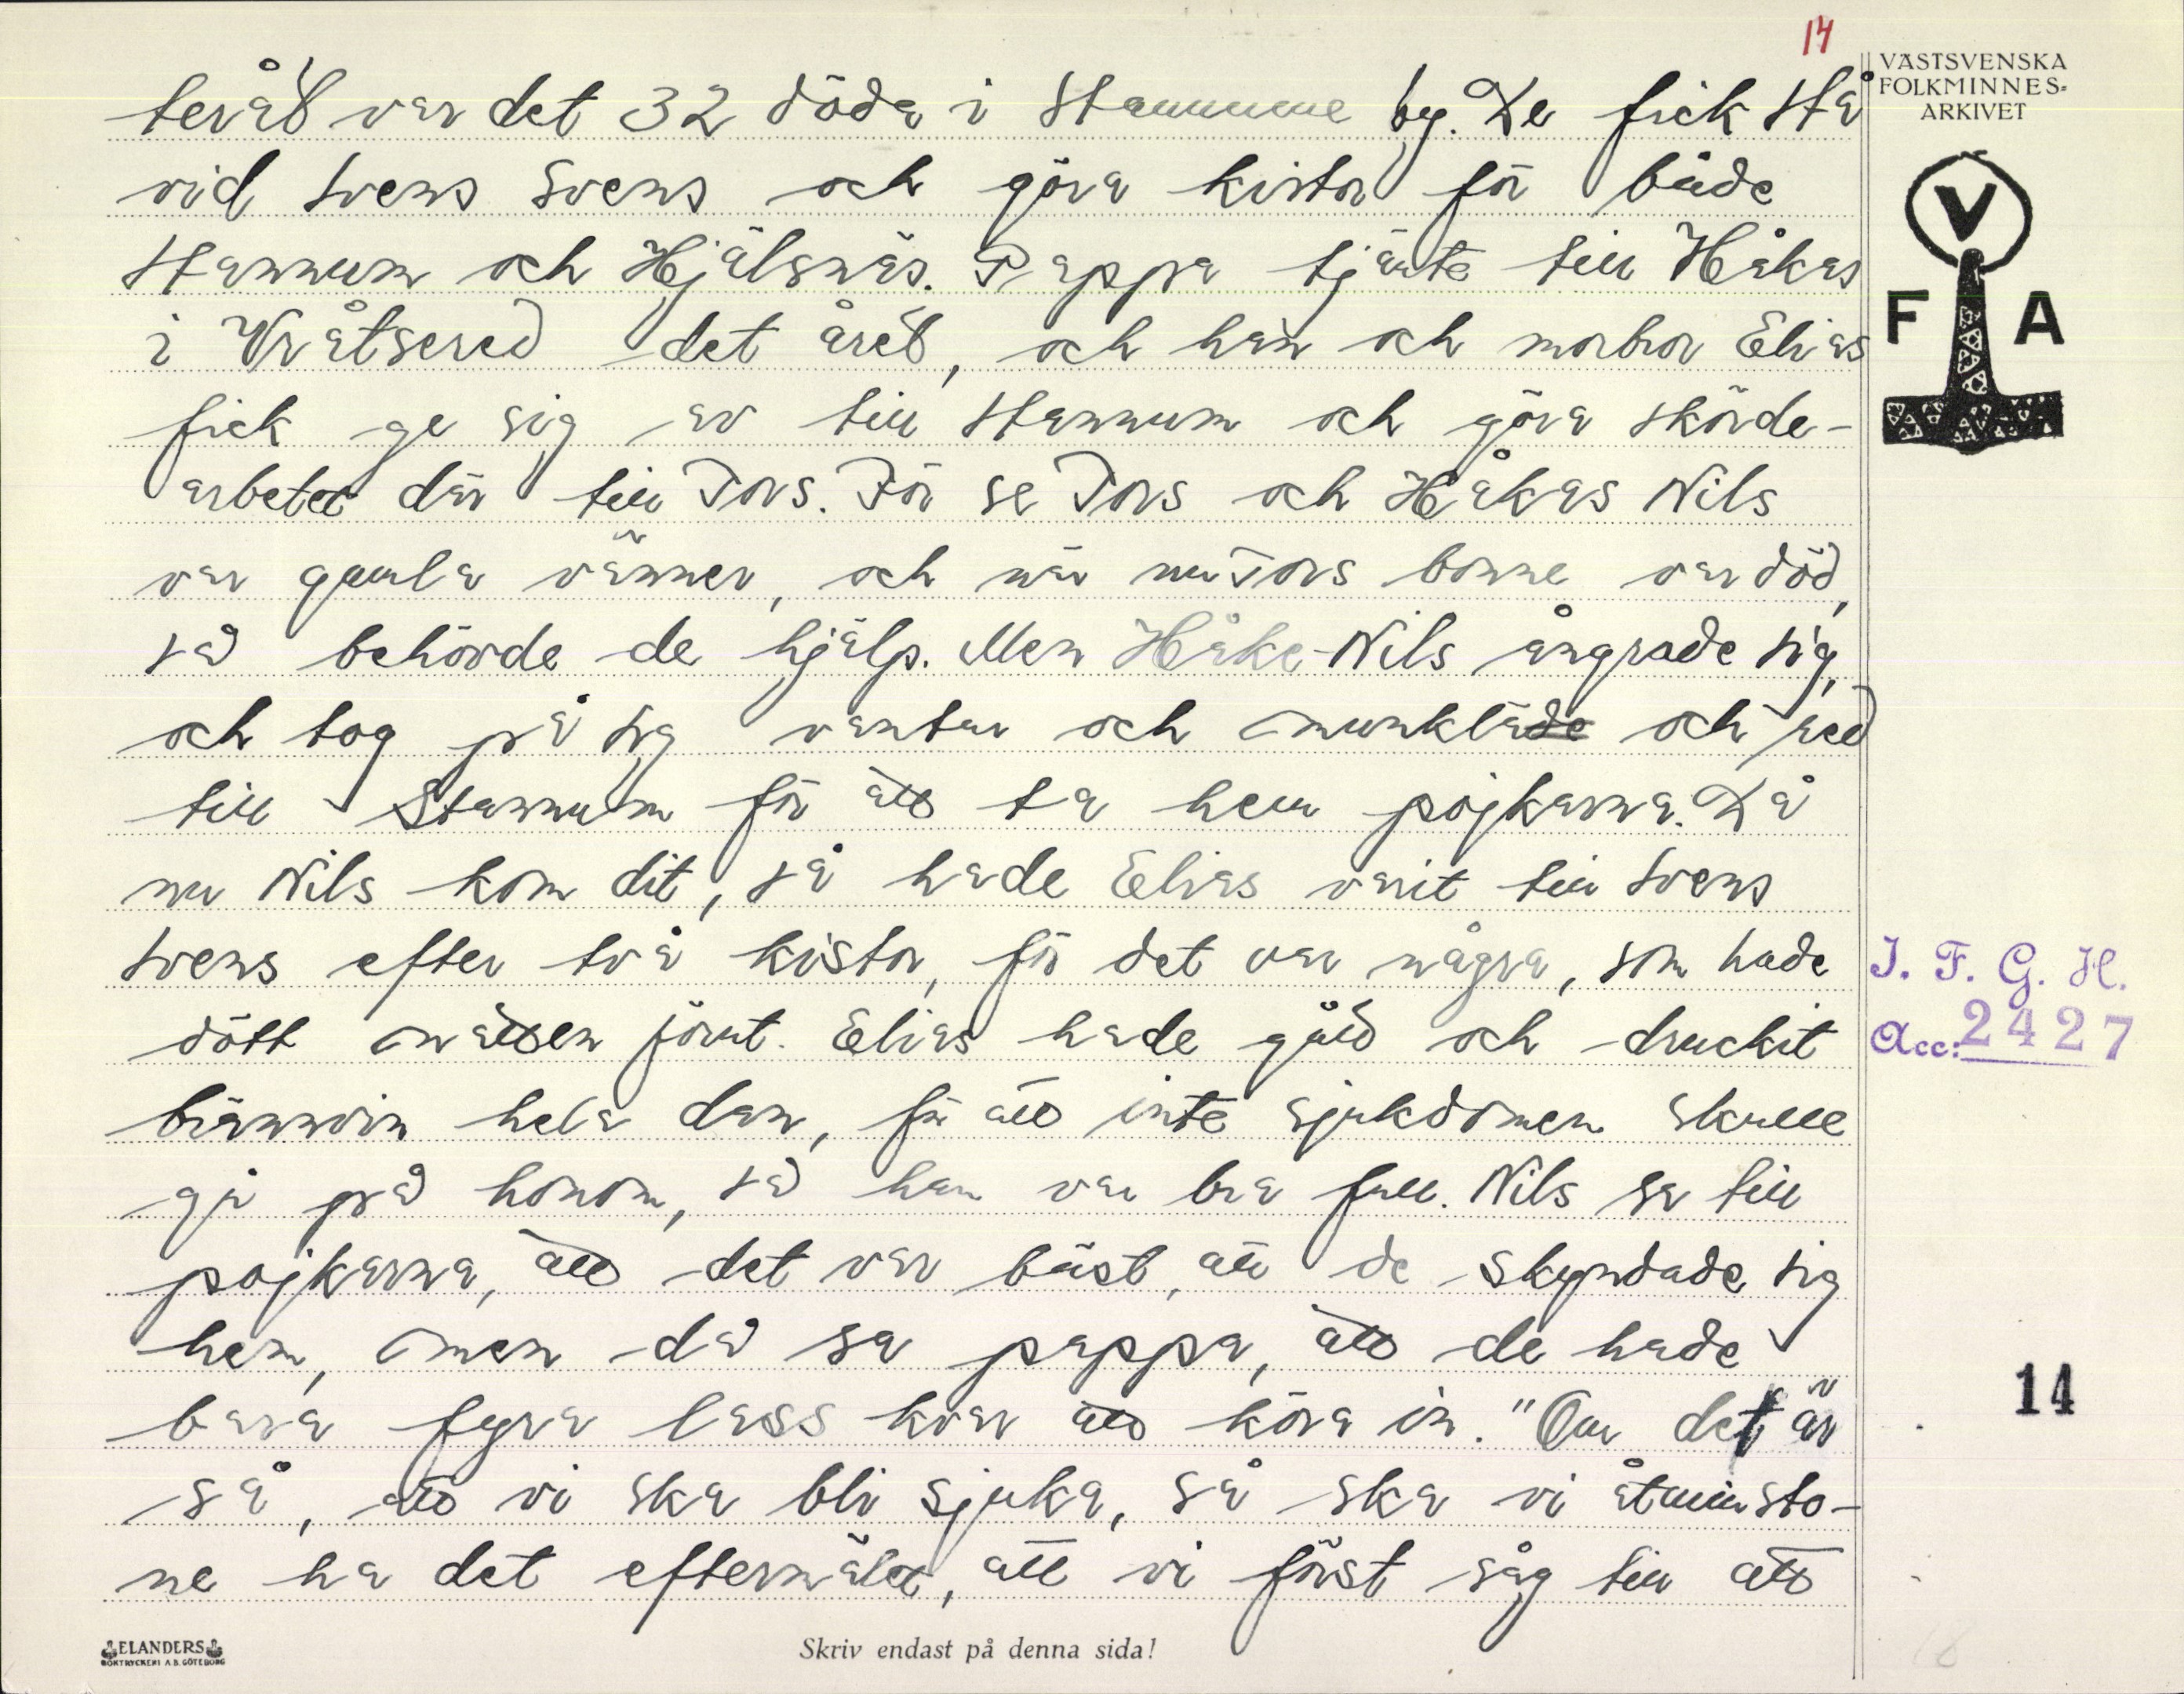 14
VÄSTSVENSKA
FOLKMINNES-
ARKIVET
V
F A
teråt var det 32 döda i Stannume by. De fick stå
vid Svens Svens och göra kistor för både
Stannum och Hjälsnäs. Pappa tjänte till Håkas
i Vråtsered det året, och han och morbror Elias
fick ge sig av till Stannum och göra skörde-
arbetet där till Tors. För se Tors och Håkas Nils
var gamla vänner, och när nu Tors bonne var död,
så behövde de hjälp. Men Håke-Nils ångrade sig,
och tog på sig vantar och munkläde och red
till Stannum för att ta hem pojkarna. Då
nu Nils kom dit, så hade Elias varit till Svens
Svens efter två kistor, för det var några, som hade
dött natten förut. Elias hade gått och druckit
brännvin hela dan, för att inte sjukdomen skulle
gå på honom, så han var bra full. Nils sa till
pojkarna, att det var bäst, att de skyndade sig
hem, men då sa pappa, att de hade
bara fyra lass kvar att köra in. "Om det är
så, att vi ska bli sjuka, så ska vi åtminsto-
ne ha det eftermälet, att vi först såg till att
I. F. G. H.
Acc: 2427
14
ELANDERS
BOKTRYCKERI A.B. GÖTEBORG
Skriv endast på denna sida!